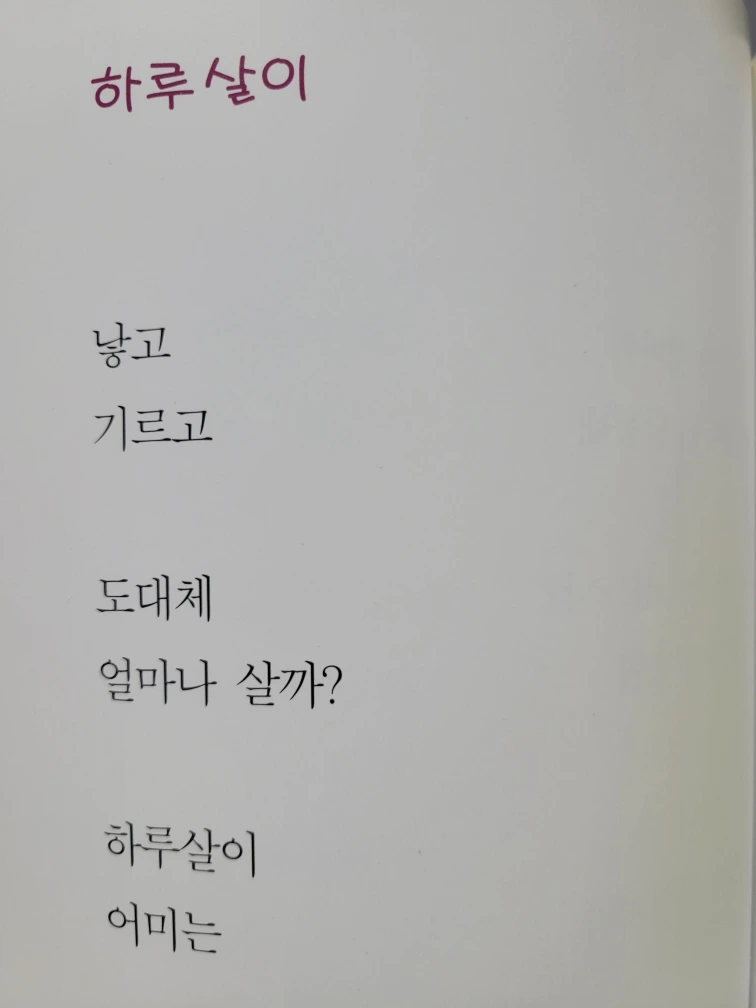 하루살이
낳고
기르고
도대체
얼마나 살까?
하루살이
어미는